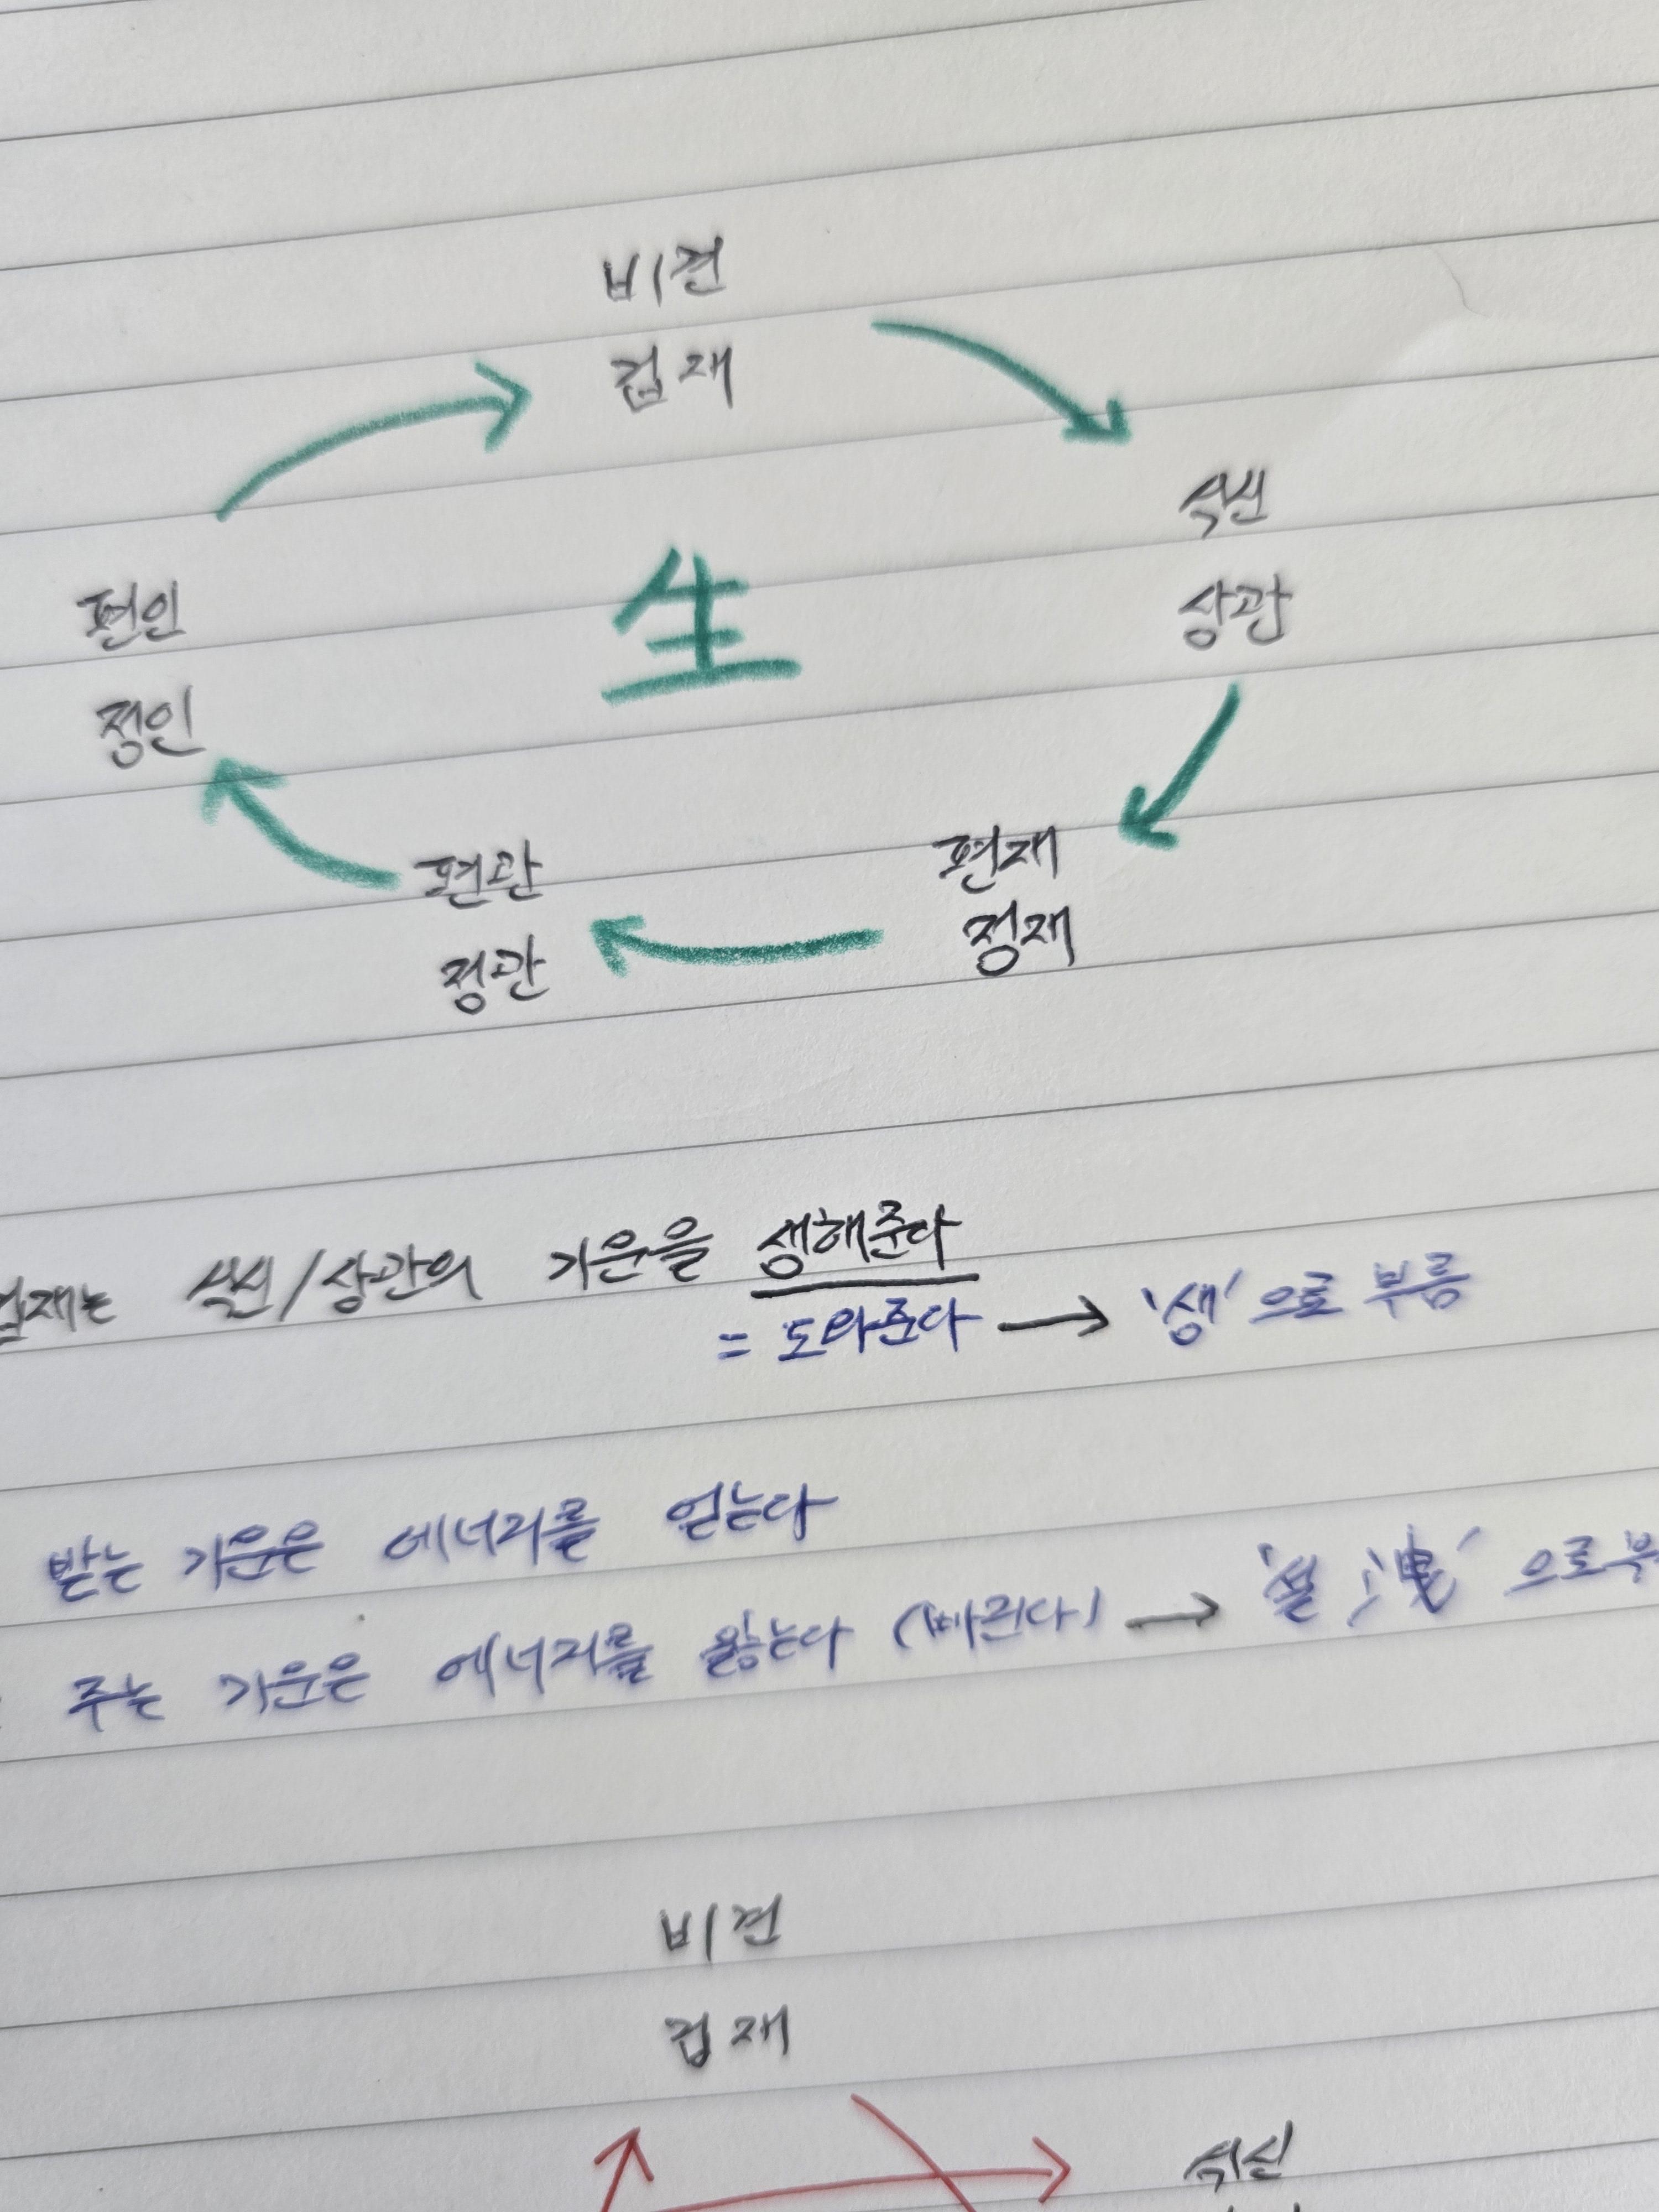 비견
겁재
식신
상관
편인
정인
生
편재
정재
편관
정관
겁재는 식신/상관의 기운을 생해준다
= 도와준다 → '생'으로 부름
받는 기운은 에너지를 얻는다
주는 기운은 에너지를 잃는다 (빠진다) → '설 洩'으로부
비견
겁재
식신